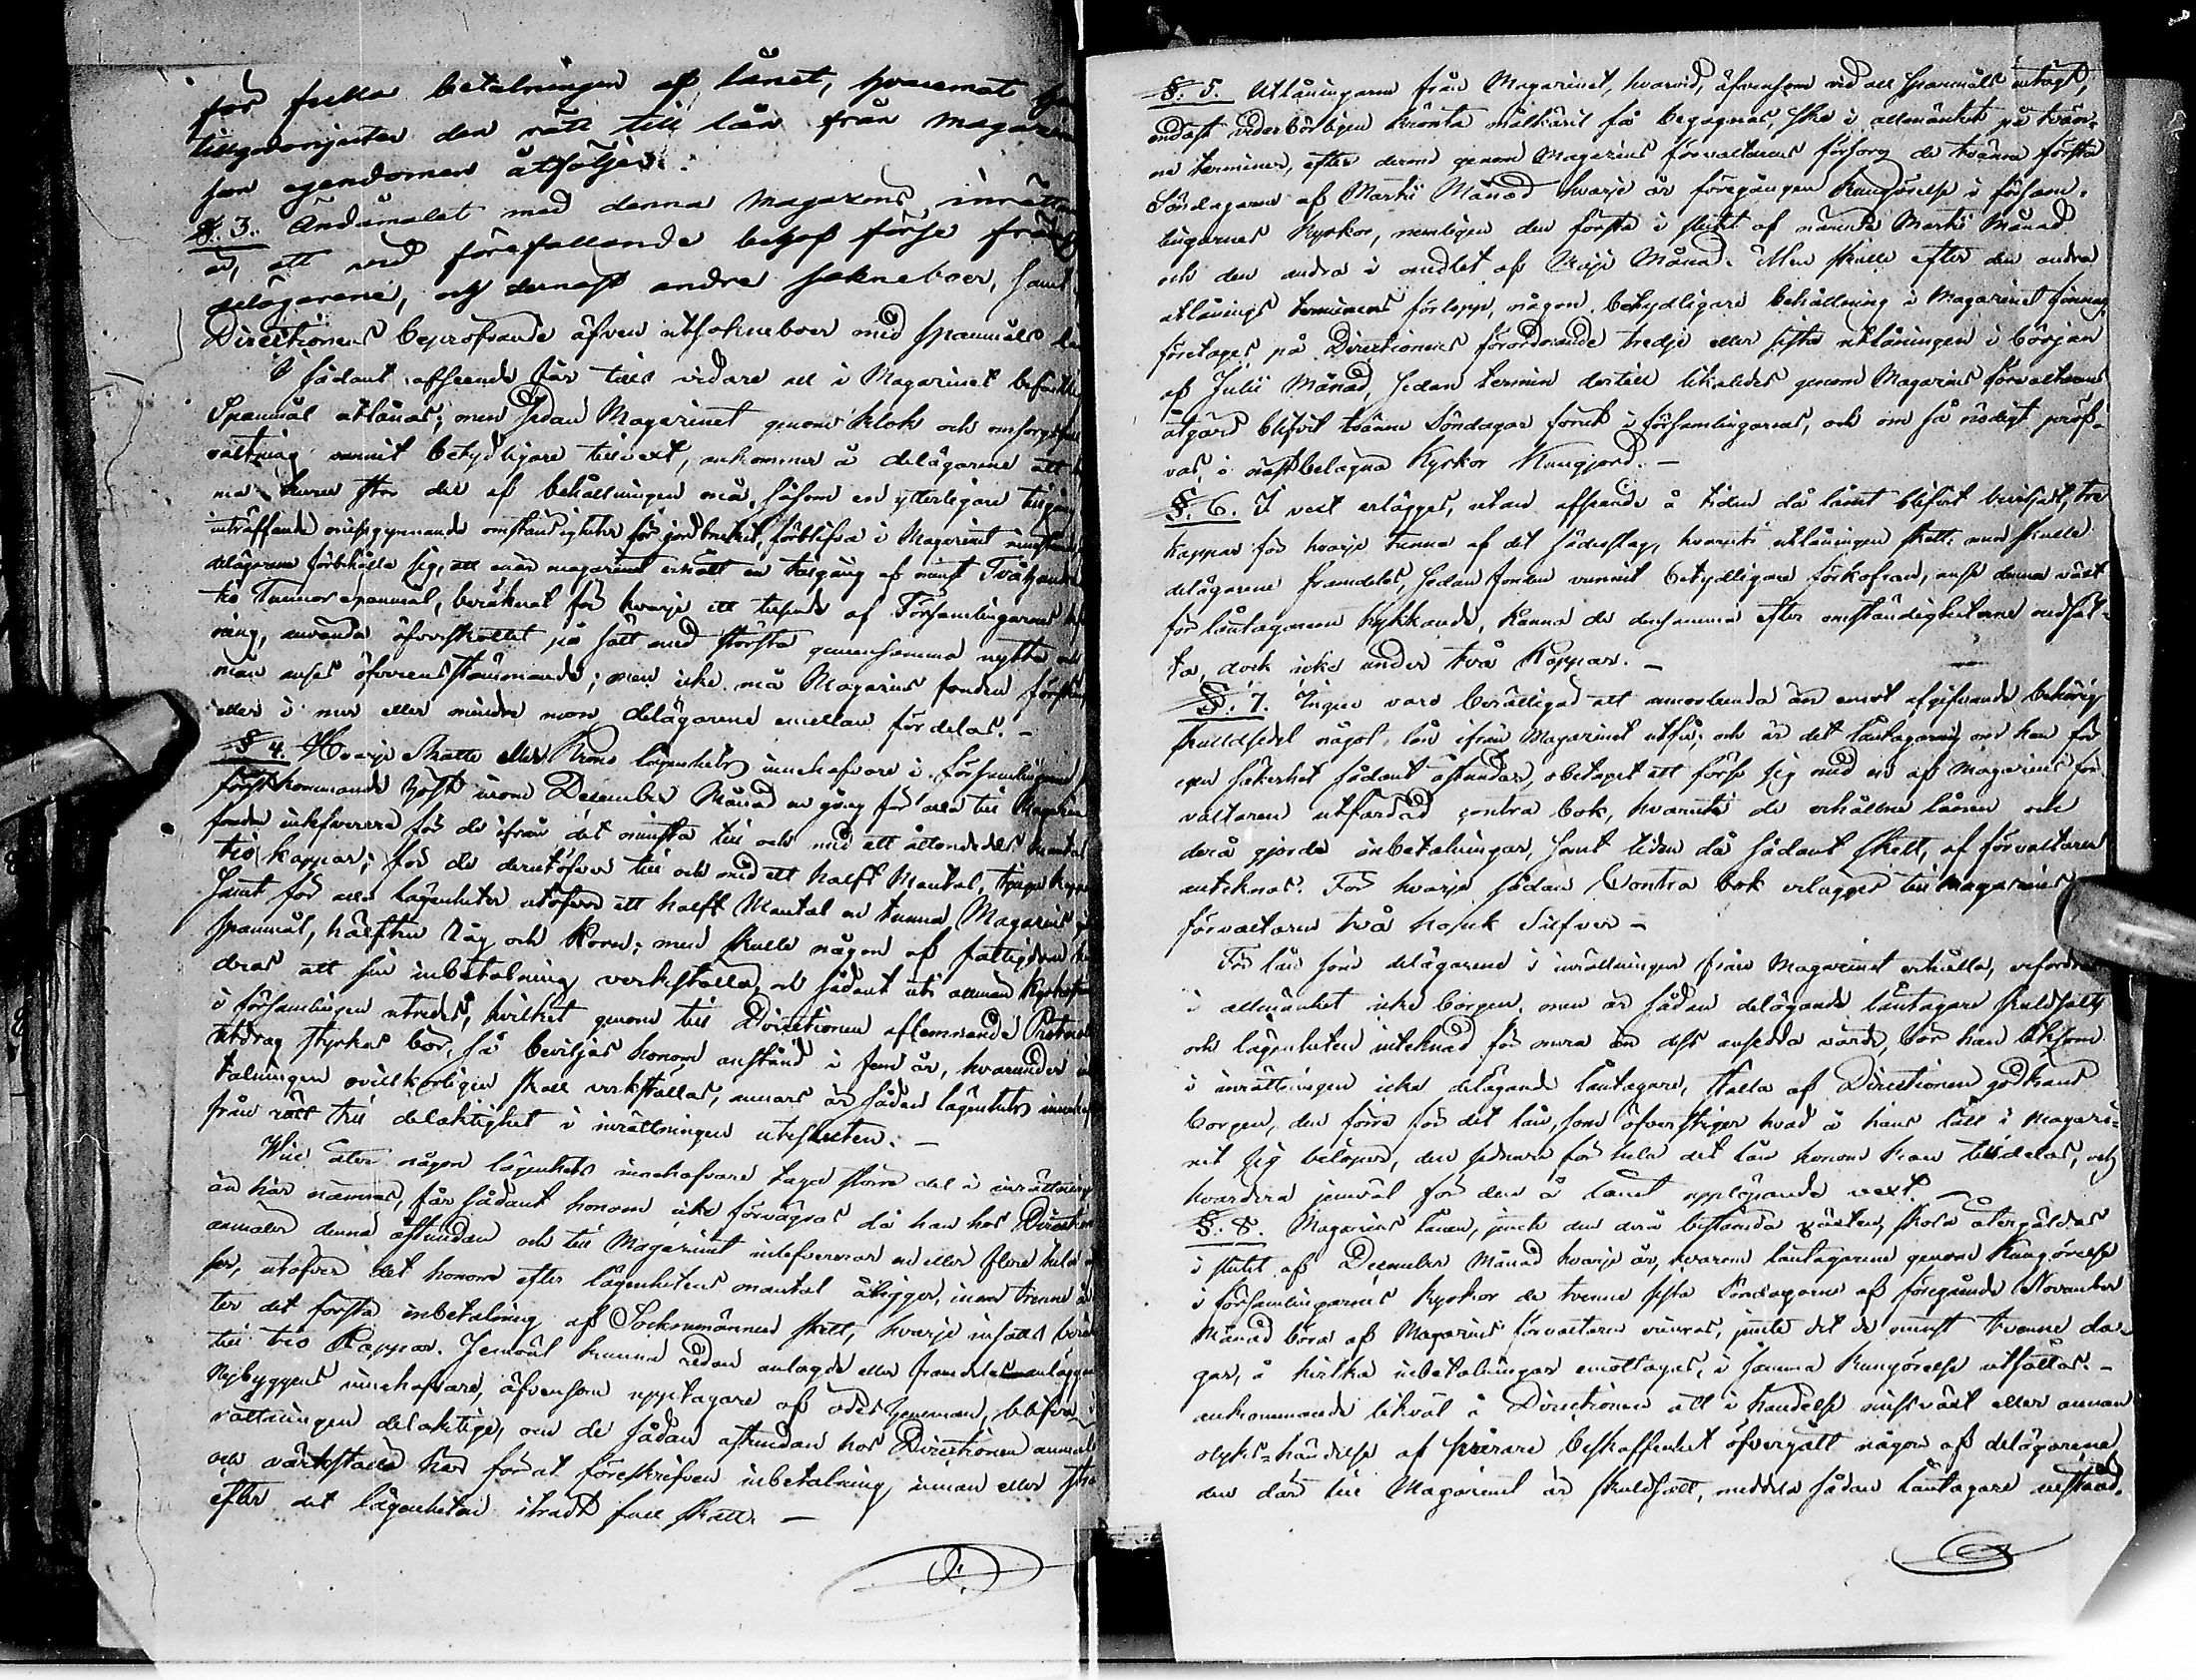 för fulla betalningen af lånet, hvaremot
tillgodonjuter den rätt till lån från Magazin
som egendomen åtföljer.
§. 3. Ändamålet med denna Magazins inrättn
är, att vid förefallande behof förse främst
delägarene, och dernäst andra Sokneboer, samt
Directionens bepröfvande äfven utsokneboer med Spannmåls
I sådant afseende får tills vidare all i Magazinet befintlig
Spanmål utlånas; men sedan Magazinet genom klok och omsorgsfull
valtning vunnit betydligare tillvext, ankommer å delägarene att
ma huru stor del af behållningen må, såsom en ytterligare tillgång
inträffande missgynnande omständigheter för jordbruket, förblifva i Magazinet
delägarne förbehålla sig, att när magazinet erhållt en tillgång af minst Tvåhundra
tio Tunnor spannmål, beräknat för hvarje ett tusende af Församlingarnes
ring, använda öfverskottet på sätt med största gemensamma nytta
man anses öfverensstämmande; men icke må Magazins fonden
eller i mer eller mindre mon delägarene emellan fördelas. –
§ 4. Hvarje Skatte eller Krono lägenhets innehafvare i församlingarne
förstkommande höst inom December Månad en gång för alla till Magazins
fonden inlefverere för de ifrån det minsta till och med ett åttondedels mantal
tio kappar; för de derutöfver till och med ett halft Mantal, tjugo kappar
samt för alla lägenheter utöfver ett halft Mantal en tunna Magazins
spanmål, hälften Råg och Korn; men skulle någon af fattigdom
dras att sin inbetalning verkställa, och sådant uti allmän Kyrkostäm
i församlingen utredes, hvilket genom till Directionen aflemnande Protocolls
Utdrag styrkas bör, så beviljas honom anstånd i fem år, hvarunder
talningen ovillkorligen skall verkställas, annars är sådan lägenhets inneh
från rätt till delaktighet i inrättningen utesluten. –
Will åter någon lägenhets innehafvare taga större del i inrättning
än här nämnes, får sådant honom icke förvägras då han hos Direction
anmäler denna åstundan och till Magazinet inlefvererar en eller flere hela
ser, utöfver det honom efter lägenhetens mantal åligger, inom trenne år
ter det första inbetalning af Socknemännen skett, hvarje insatts
till tio Kappar. Jemväl kunna redan anlagde eller framdeles anlägga
Nybyggens innehafvare, äfvensom upptagare af ödes hemman, blifva i
rättningen delaktige, om de sådan åstundan hos Directionen anmäl
och värkställa här förut föreskrifven inbetalning innan eller
efter det lägenheten iträdt full skatt. –
§. 5. Utlåningarne från Magazinet, hvarvid, äfvensom vid all spannmåls intagt,
endast vederbörligen krönta målkäril få begagnas, ske i allmänhet på tvän-
ne terminer, efter derom genom Magazins förvaltarens försorg de tvänne första
Söndagarne af Martii Månad hvarje år föregången kungörelse i försam-
lingarnes Kyrkor, nemligen den första i slutet af nämnde Martii Månad
och den andra i medlet af Maji Månad. Men skulle efter den andra
utlånings terminens förlopp, någon betydligare behållning i Magazinet finnas
företages på Directionens förordnande tredje eller sista utlåningen i början
af Julii Månad, sedan termin dertill likaledes genom Magazins förvaltarens
åtgärd blifvit tvänne Söndagar förut i församlingarnas, och om så nödigt pröf-
vas, i näst belägna Kyrkor Kungjord. –
§. 6. I vext erlägges, utan afseende å tiden då lånet blifvit beviljadt, tre
kappar för hvarje tunna af det sädesslag, hvaruti utlåningen skett. men skulle
delägarene framdeles, sedan fonden vunnit betydligare förkofran, anse denna växt
för låntagaren tryckande, kunna de densamma efter omständigheterne nedsät-
ta, dock icke under två Kappar. –
§. 7. Ingen vare berättigad att annorlunda än emot afgifvande behörig
skuldsedel något lån ifrån Magazinet utfå; och är det låntagaren om han för
egen säkerhet sådant åstundar, obetaget att förse sig med en af Magazins för
valtaren utfärdad contra bok, hvaruti de erhållna lånen och
derå gjorda inbetalningar, samt tiden då sådant skett, af förvaltaren
antecknas. För hvarje sådan Contra bok erlägges till Magazins
förvaltaren två Silfver –
För lån som delägarene i inrättningen från Magazinet erhålla, erfordras
i allmänhet icke borgen. men är sådan delägande låntagare skuldsatt
och lägenheten inteknad för mera än dess ansedda värde, bör han liksom
i inrättningen icke delägande låntagare, ställa af Directionen godkänd
borgen, den förra för det lån, som öfverstiger hvad å hans lått i Magazi-
net sig belöper, den sednare för hela det lån honom kan tilldelas, och
hvardera jemväl för den å lånet upplöpande vext. –
§. 8. Magazins lånen, jemte den derå bestämda växten, skola återgäldas
i slutet af December Månad hvarje år, hvarom låntagarene genom Kungörelse
i församlingarnes kyrkor de tvenne sista Söndagarne af föregående November
Månad böra af Magazins förvaltaren varnas, jemte det de minst tvenne da-
gar, å hvilka inbetalningar emottages, i samma kungörelse utsättas. –
ankommande likväl å Directionen att i händelse missväxt eller annan
olyks-händelse af svårare beskaffenhet öfvergått någon af delägarena,
den där till Magazinet är skuldsatt, meddela sådan låntagare anstånd.